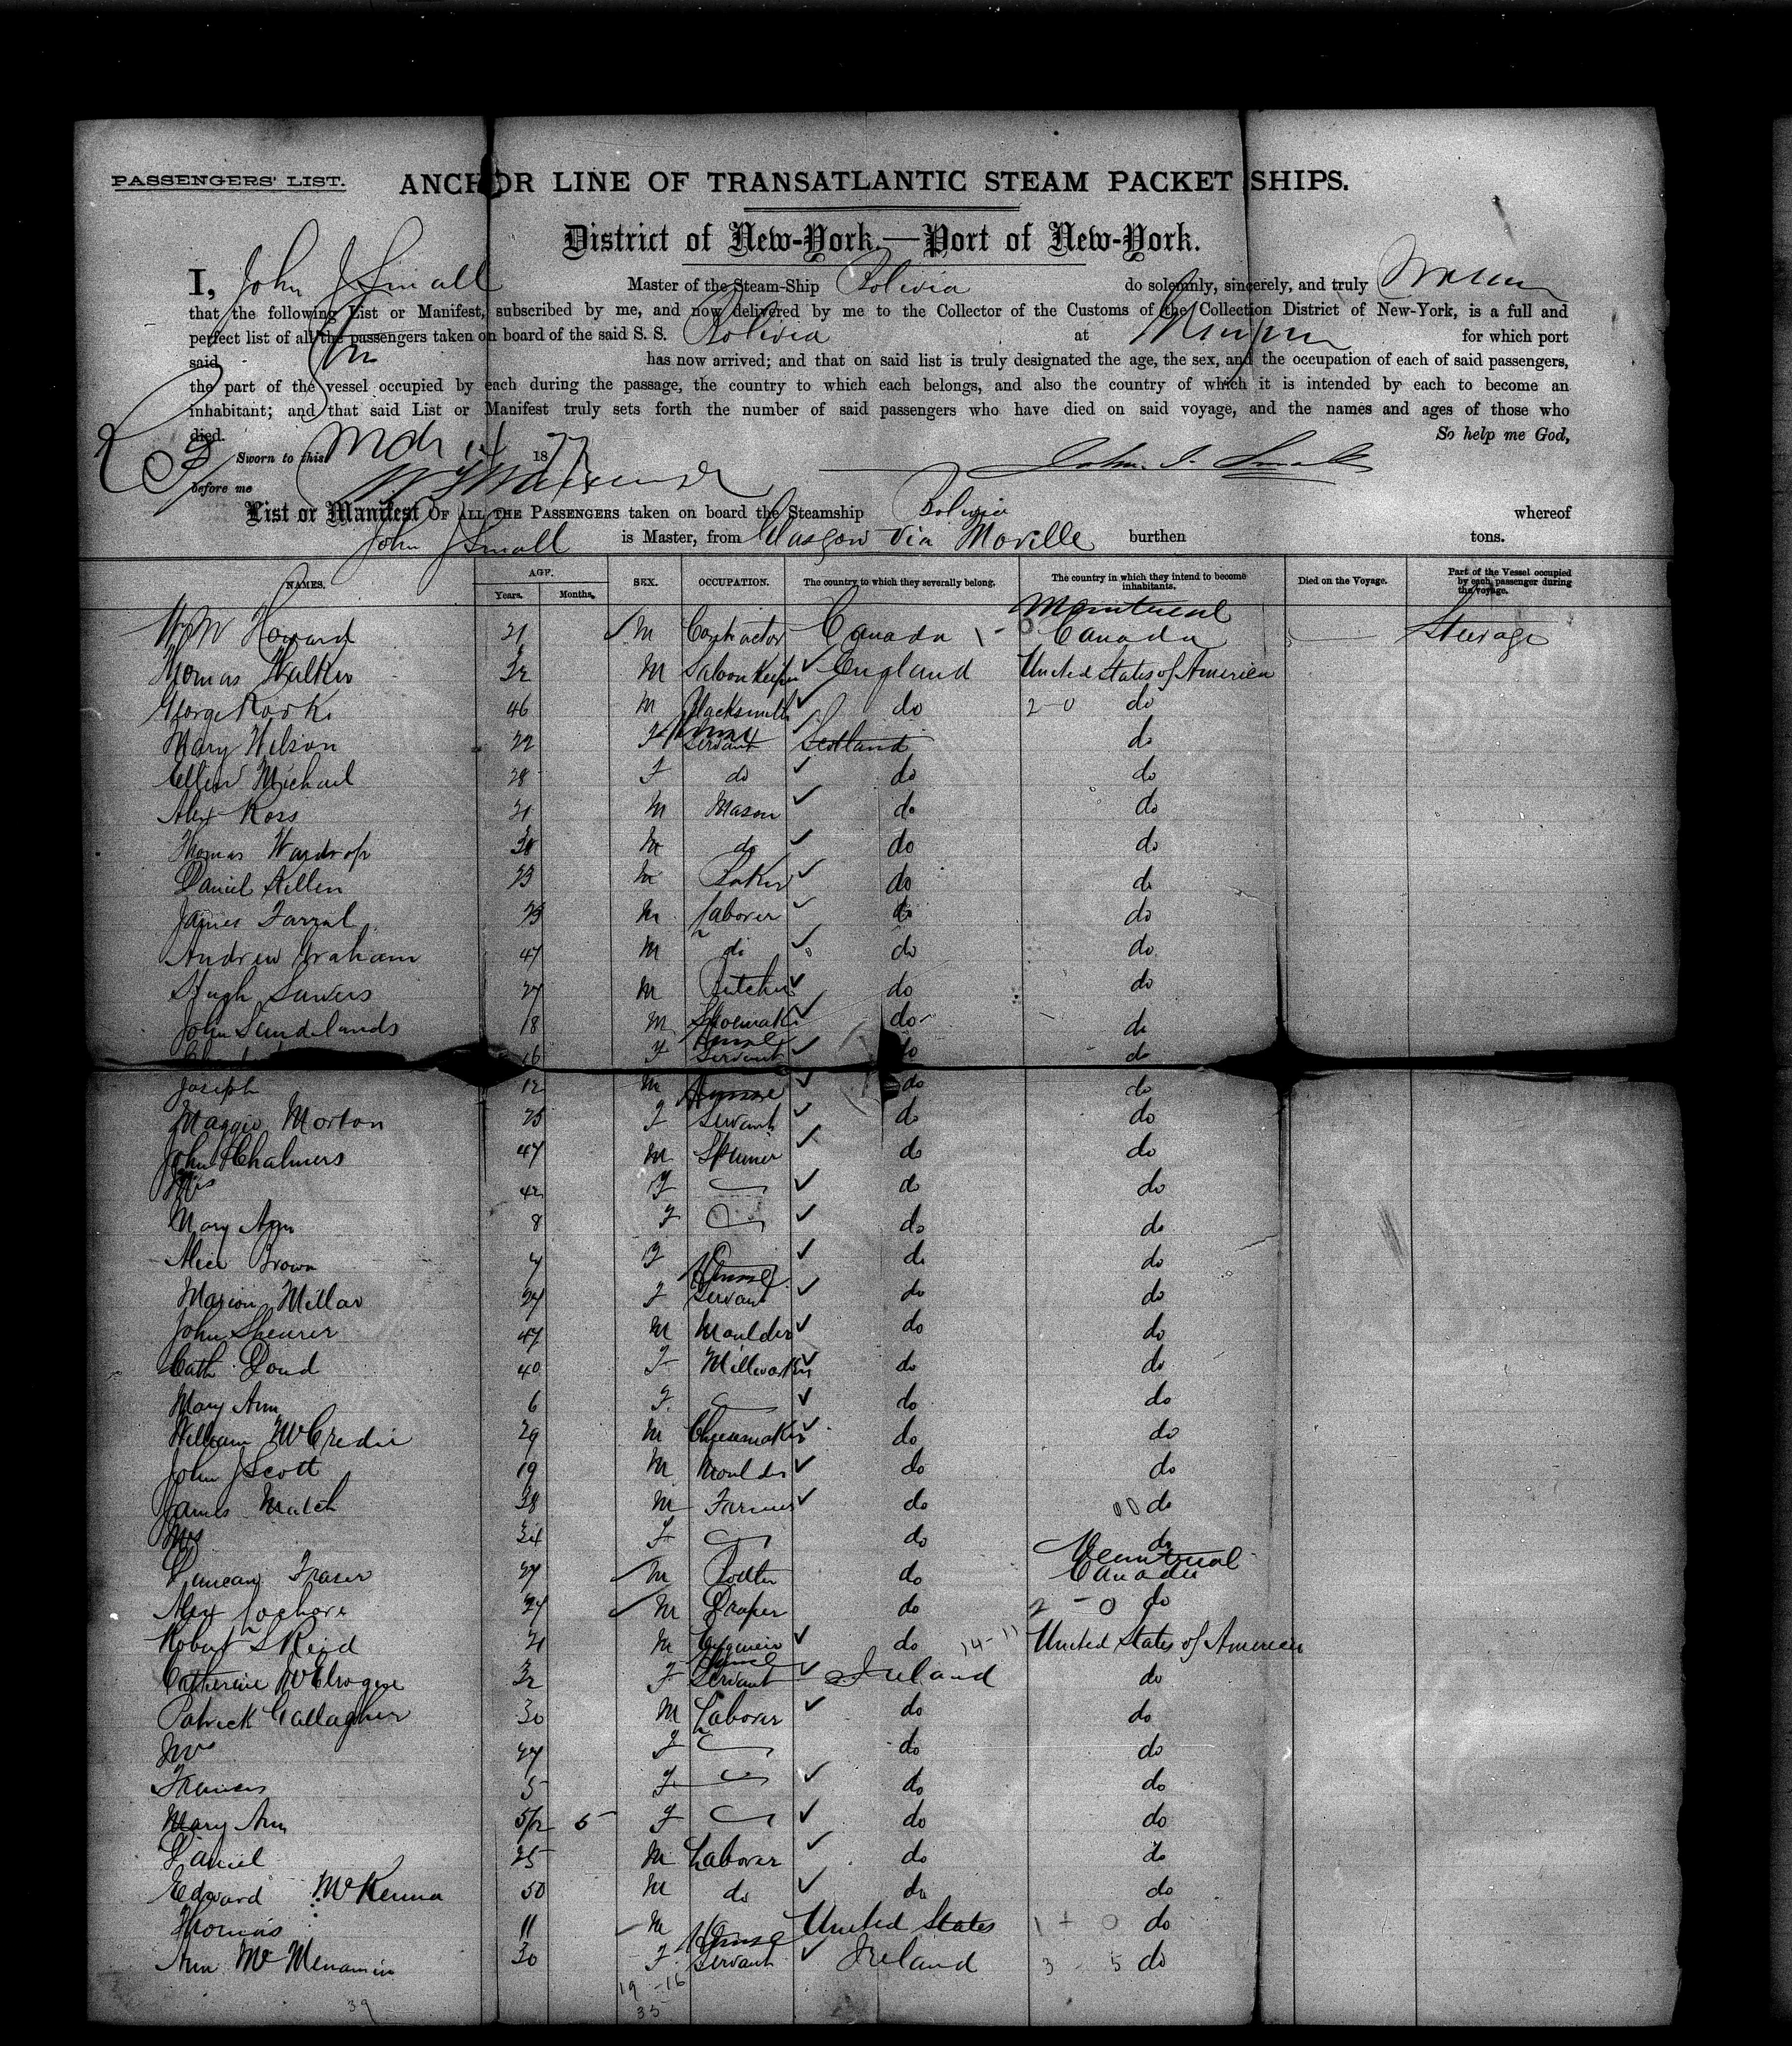 PASSENGERS' LIST.
ANCHOR LINE OF TRANSATLANTIC STEAM PACKET SHIPS.
District of New-York.—Port of New-York.
I, John J Small Master of the Steam-Ship Bolivia do solemnly, sincerely, and truly
that the following List or Manifest, subscribed by me, and now delivered by me to the Collector of the Customs of the Collection District of New-York, is a full and
perfect list of all the passengers taken on board of the said S. S. Bolivia at for which port
said has now arrived; and that on said list is truly designated the age, the sex, and the occupation of each of said passengers,
the part of the vessel occupied by each during the passage, the country to which each belongs, and also the country of which it is intended by each to become an
inhabitant; and that said List or Manifest truly sets forth the number of said passengers who have died on said voyage, and the names and ages of those who
died. So help me God,
Sworn to this Mch 14 1877 John J. Small
before me
List or Manifest OF ALL THE PASSENGERS taken on board the Steamship Bolivia whereof
John J Small is Master, from Glasgow via Moville burthen tons.
NAMES. AGE. Years. Months. SEX. OCCUPATION. The country to which they severally belong. The country in which they intend to become inhabitants. Died on the Voyage. Part of the Vessel occupied by each passenger during the voyage.
Wm W Howard 21 M Contractor Canada Montreal Canada Steerage
Thomas Walker 32 M Saloon Keeper England United States of America
George 46 M Blacksmith do 2-0 do
Mary Wilson 22 F House Servant Scotland do
Ellen Michael 28 F do do do
Alex Ross 21 M Mason do do
Thomas Wardrop M do do do
Daniel Killen 23 M Baker do do
James Farral M Laborer do do
Andrew Graham 47 M do do do
Hugh Sawers 27 M Butcher do do
John Sandilands 18 M Shoemaker do do
16 F House Servant do do
Joseph 12 M do do
Maggie Morton 25 F House Servant do do
John Chalmers 47 M do do
Mrs 42 F do do
Mary Ann 8 F do do
Alice Brown F do do
Marion Millar 24 F House Servant do do
John Shearer 47 M Moulder do do
Cath Doud 40 F Millworker do do
Mary Ann 6 F do do
William McCredie 29 M do do
John J Scott 19 M Moulder do do
James Match 38 M Farmer do 00 do
Mrs 34 F do do
Duncan Fraser 27 M do Montreal Canada
Alex Lochore 24 M Draper do 2-0 do
Robert S Reid 21 M Engineer do 14-11 United States of America
Catherine 32 F House Servant Ireland do
Patrick Gallagher 30 M Laborer do do
Mrs 27 F do do
Frances 5 F do do
Mary Ann 5/12 5 F do do
Daniel 25 M Laborer do do
Edward McKenna 50 M do do do
Thomas 11 M United States 1+0 do
Ann McMenamin 30 F House Servant Ireland 3 5 do
19-16
39 35